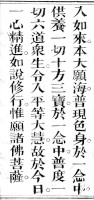 入如來本大願海普現色身於一念中
供養一切十方三寶於一念中普度一
切六道眾生令入平等大慧故於今日
一心精進如說修行惟願諸佛菩薩